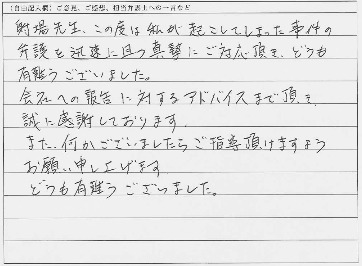 (自由記入欄)ご意見、ご感想、担当弁護士への一言など
的場先生、この度は私が起こしてしまった事件の
弁護を迅速に且つ真摯にご対応頂き、どうも
有難うございました。
会社への報告に対するアドバイスまで頂き、
誠に感謝しております。
また、何かございましたらご指導頂けますよう
お願い申し上げます。
どうも有難うございました。